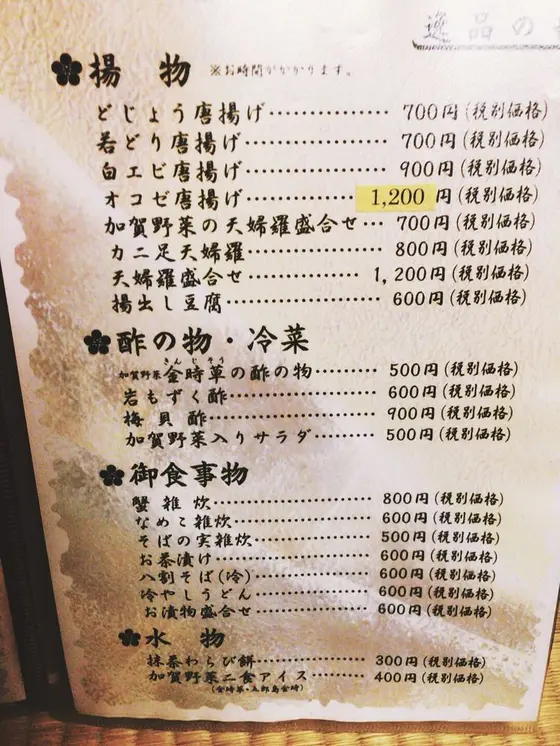 逸品の
揚物 ※お時間がかかります。
どじょう唐揚げ……………… 700円(税別価格)
若どり唐揚げ……………… 700円(税別価格)
白エビ唐揚げ……………… 900円(税別価格)
オコゼ唐揚げ…………… 1,200円(税別価格)
加賀野菜の天婦羅盛合せ… 700円(税別価格)
カニ足天婦羅……………… 800円(税別価格)
天婦羅盛合せ…………… 1,200円(税別価格)
揚出し豆腐………………… 600円(税別価格)
酢の物・冷菜
きんじそう
加賀野菜金時草の酢の物……… 500円(税別価格)
岩もずく酢………………… 600円(税別価格)
梅貝酢……………………… 900円(税別価格)
加賀野菜入りサラダ……… 500円(税別価格)
御食事物
蟹雑炊…………………… 800円(税別価格)
なめこ雑炊………………… 600円(税別価格)
そばの実雑炊……………… 500円(税別価格)
お茶漬け…………………… 600円(税別価格)
八割そば(冷)……………… 600円(税別価格)
冷やしうどん……………… 600円(税別価格)
お漬物盛合せ……………… 600円(税別価格)
水物
抹茶わらび餅……………… 300円(税別価格)
加賀野菜二食アイス……… 400円(税別価格)
(金時草・五郎島金時)